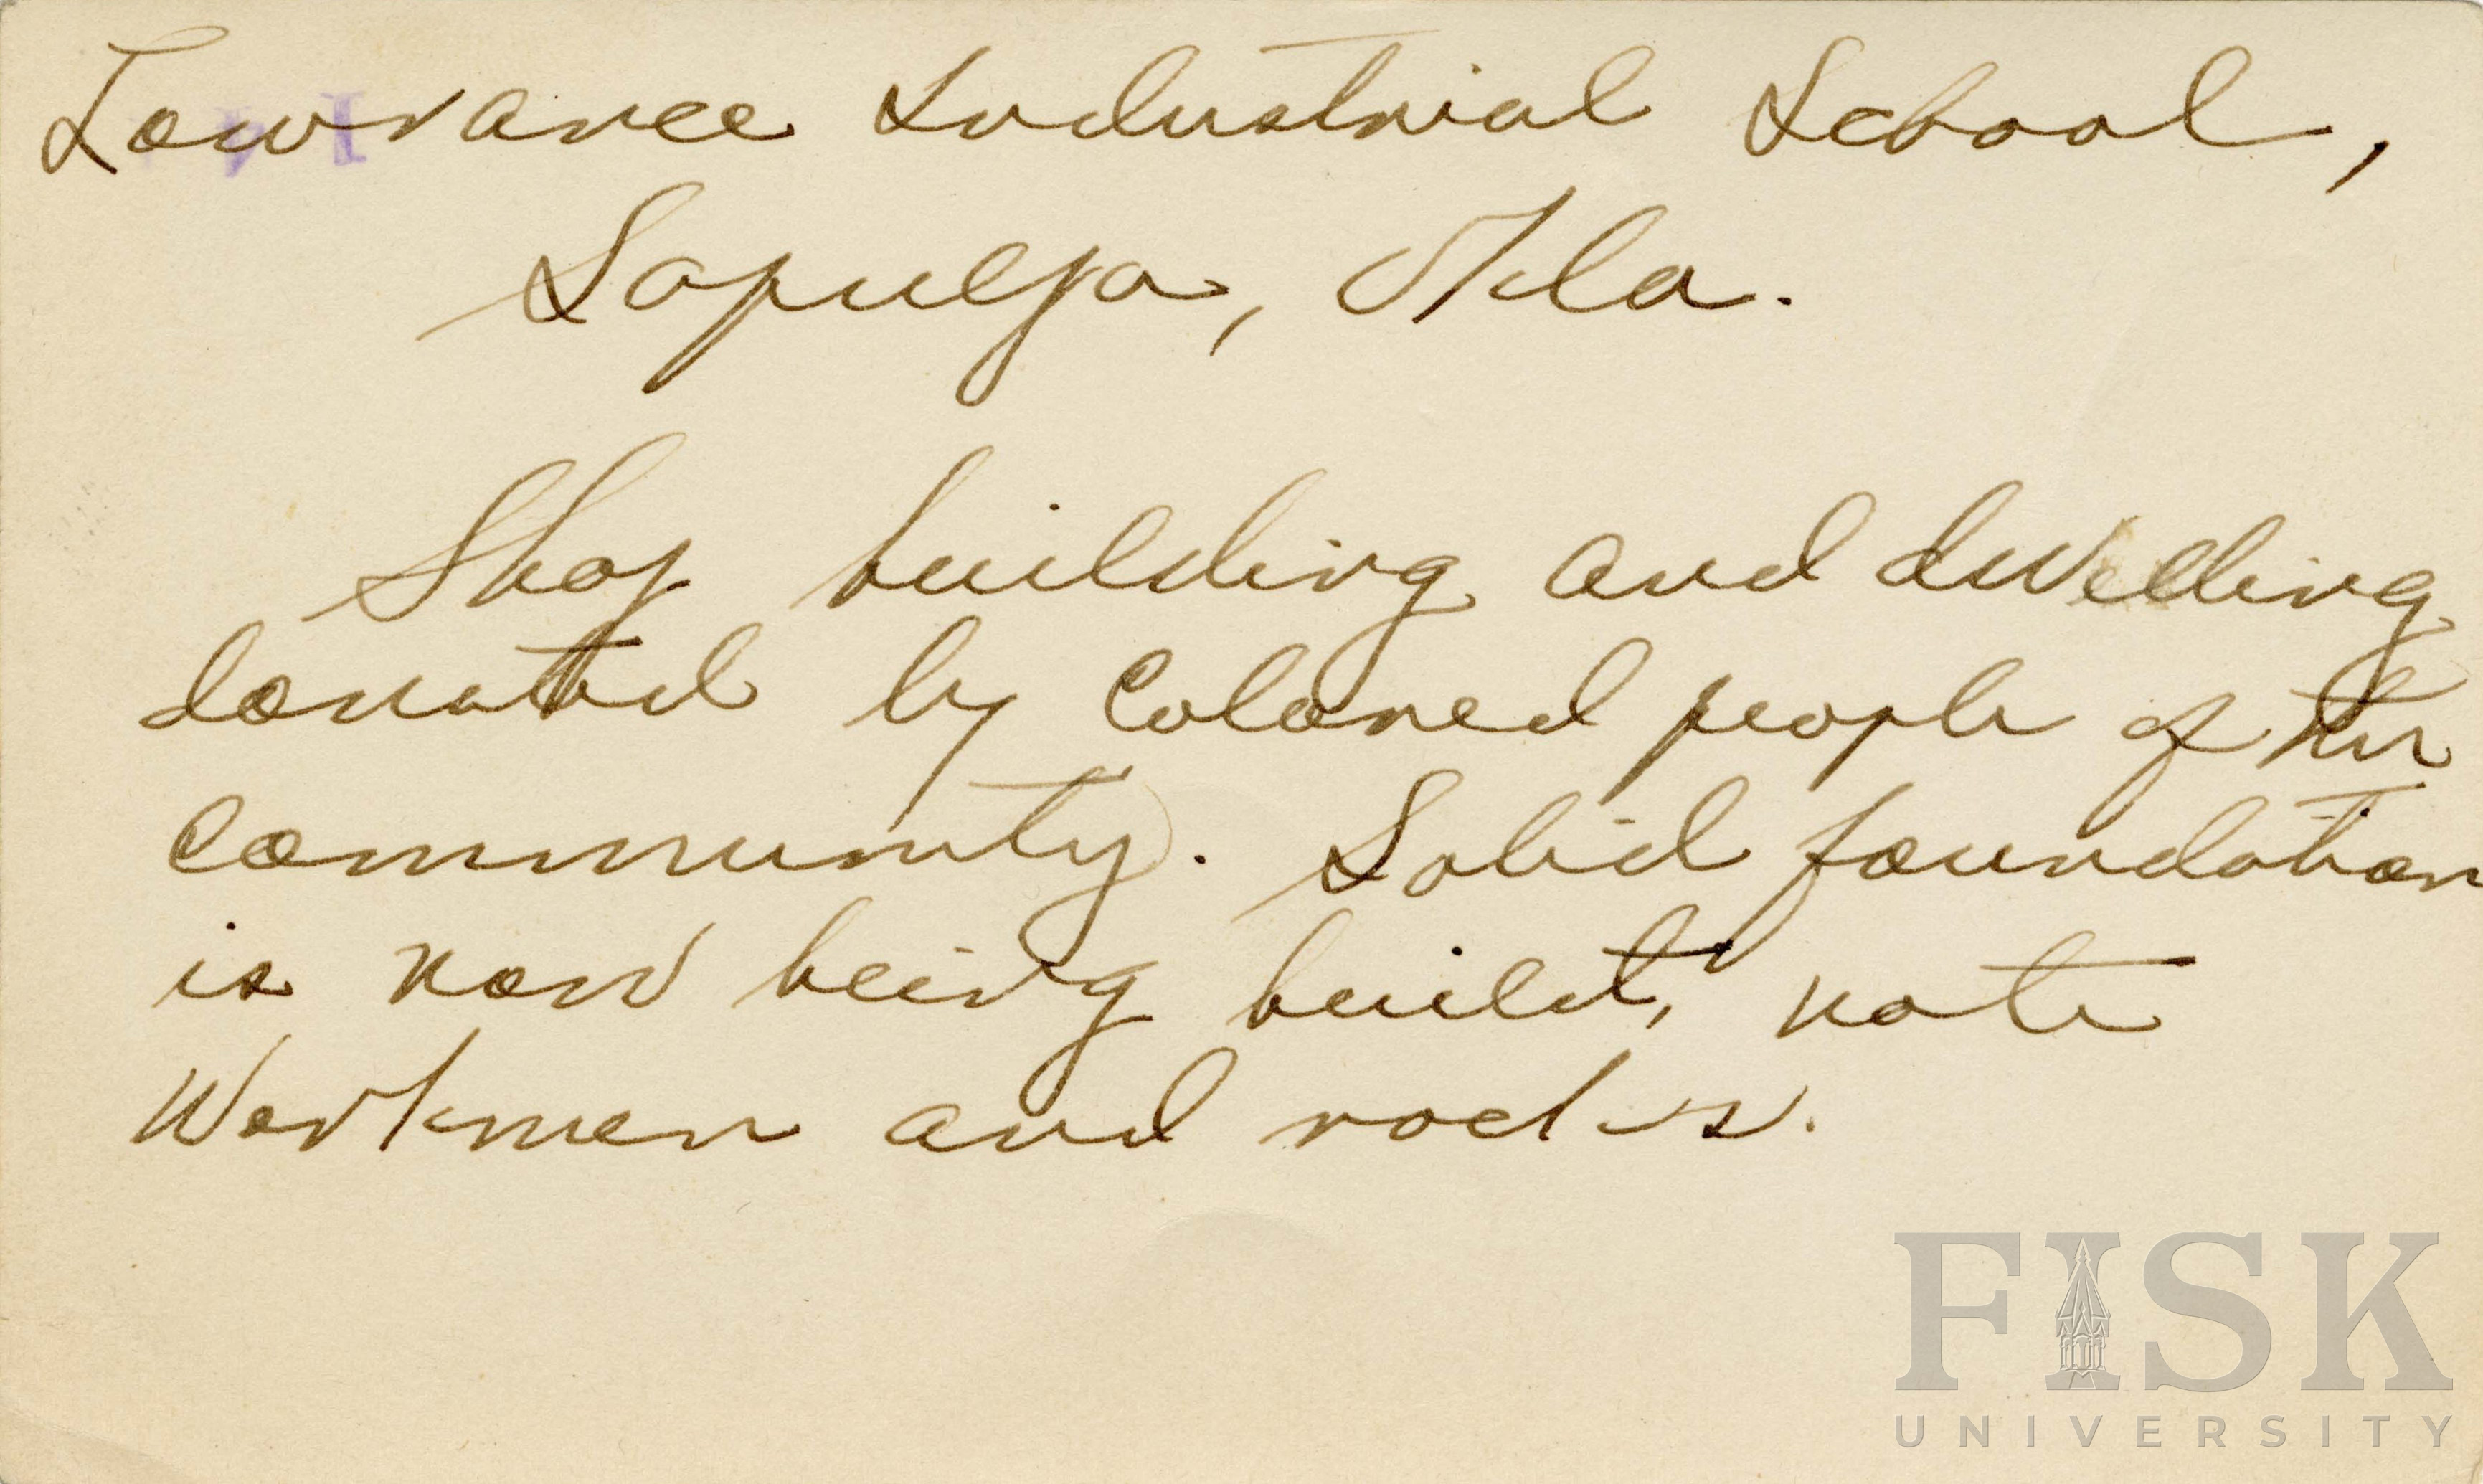 Lowrance Industrial School,
Sapulpa, Okla.
Shop building and dwelling
donated by Colored people of the
community. Solid foundation
is now being built, note
workmen and rocks.
FISK
UNIVERSITY